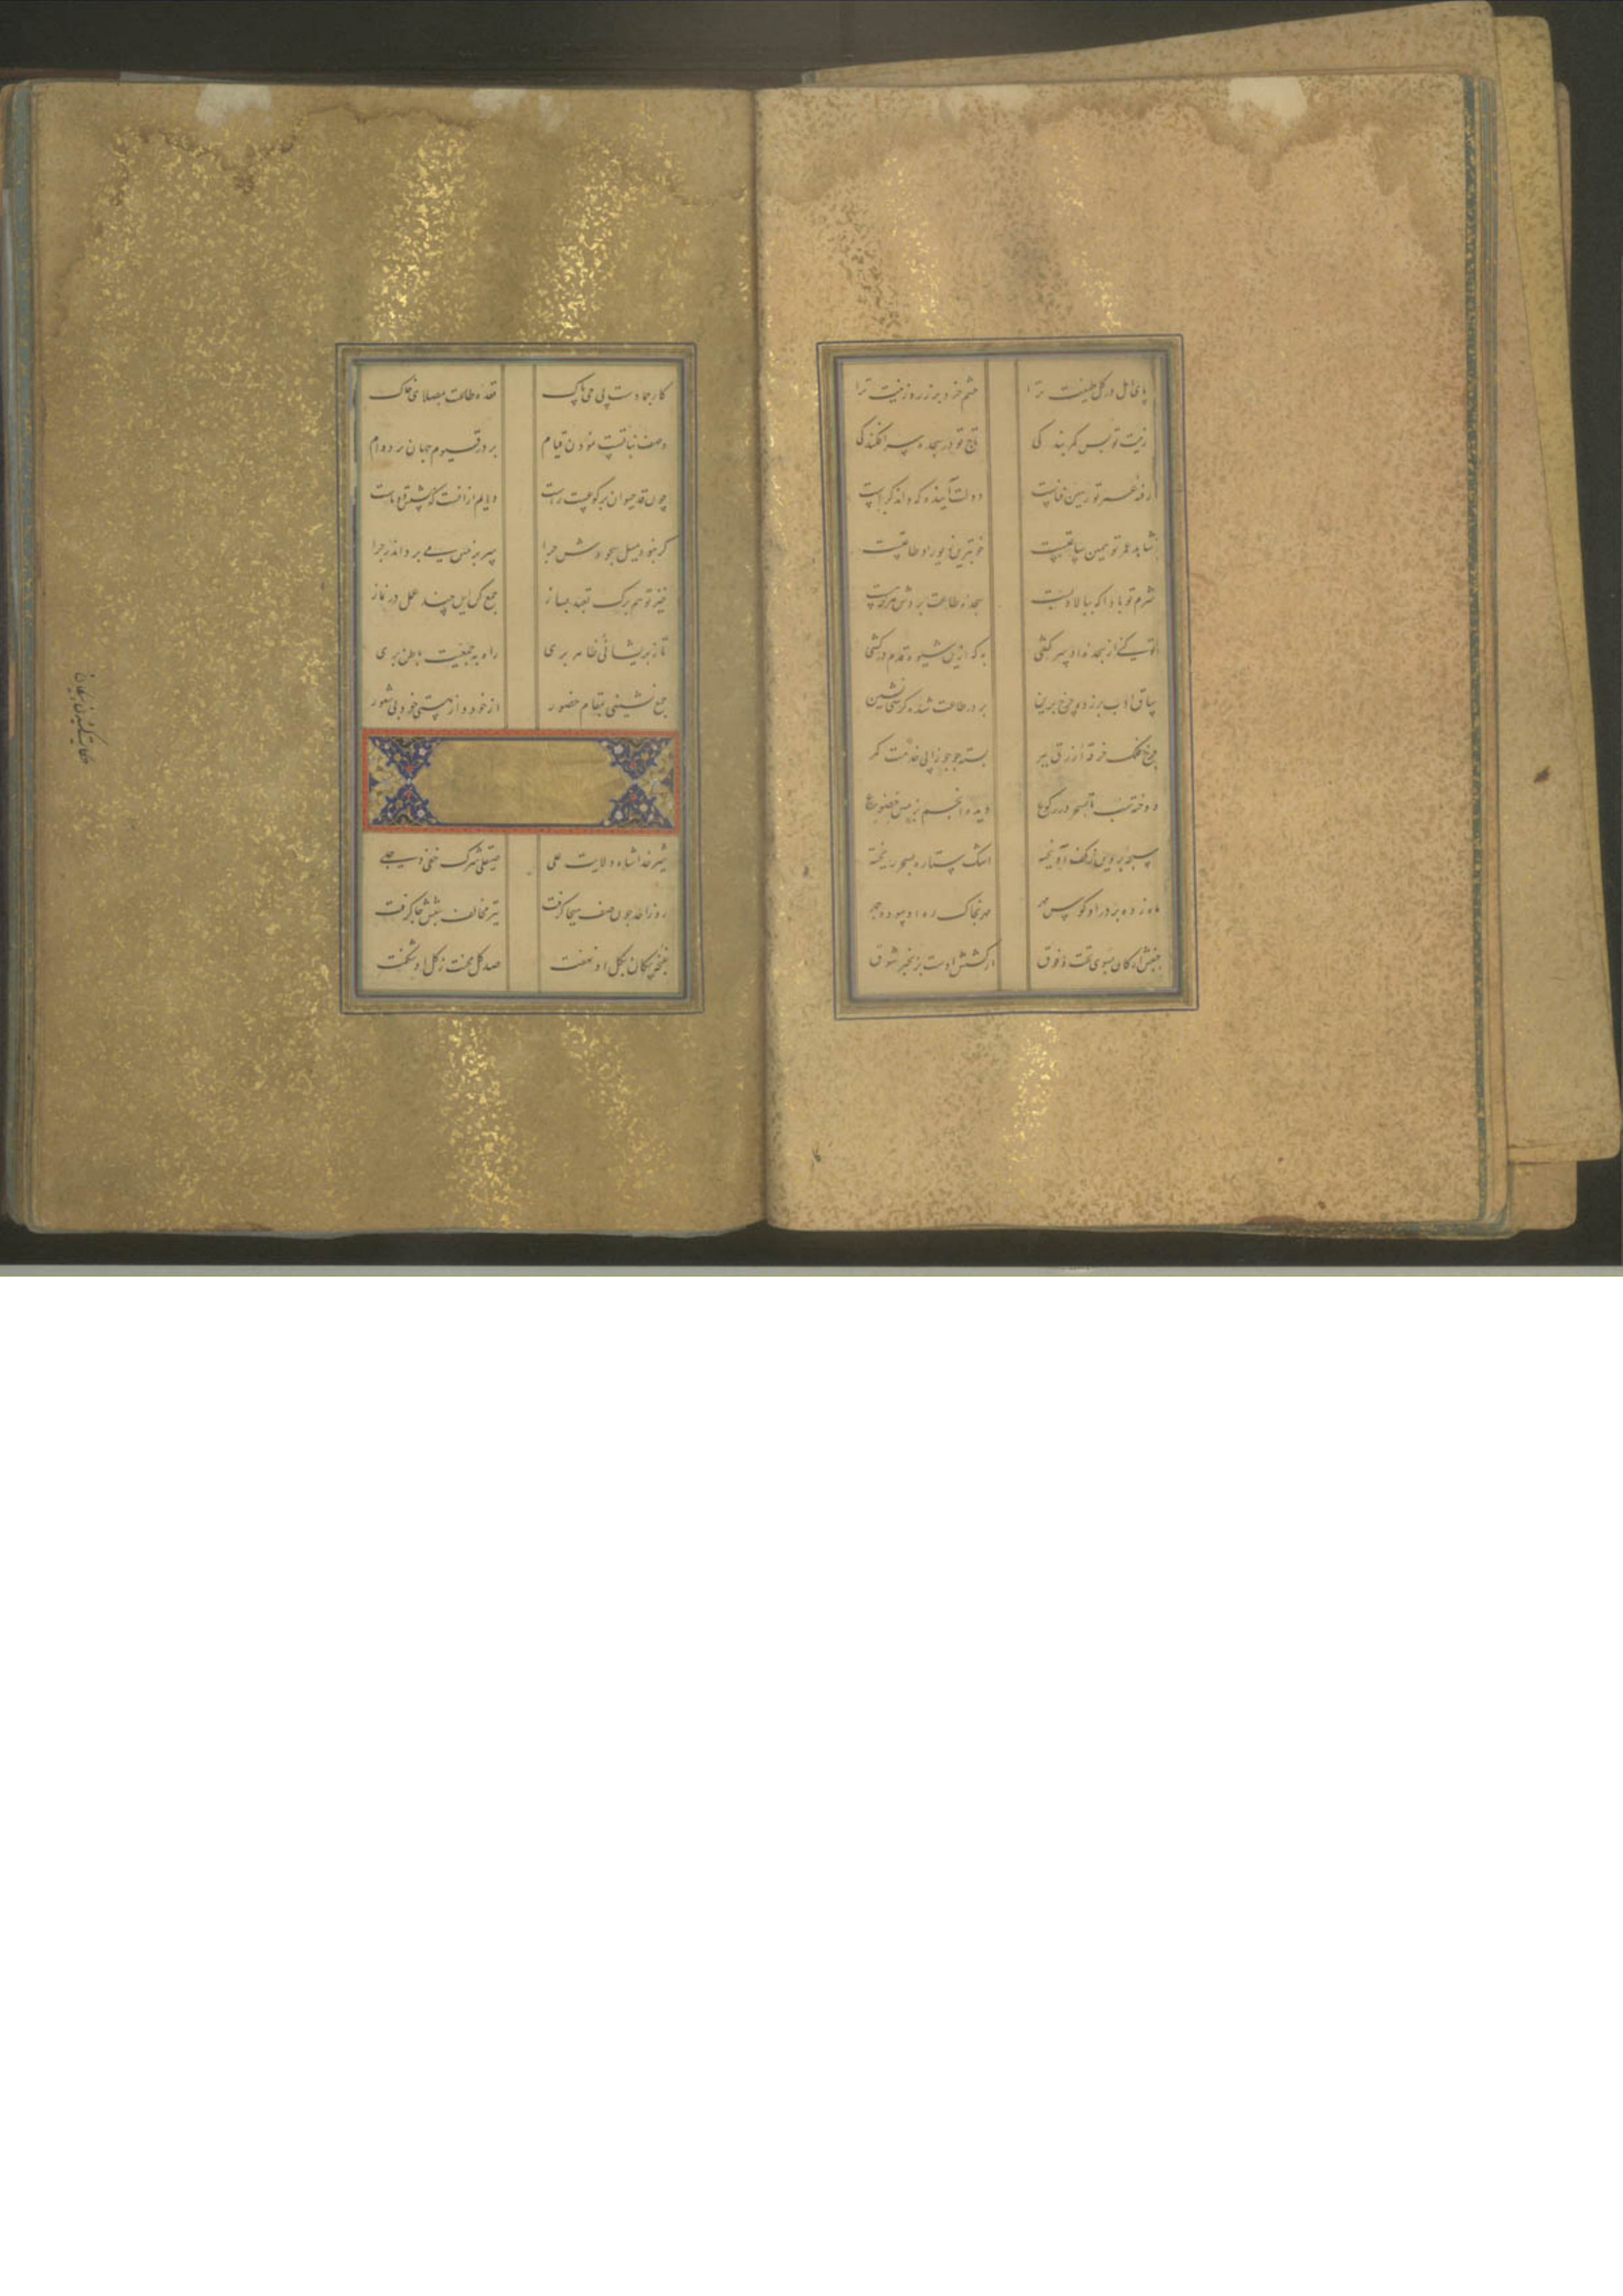 پای دل در گل طینت ترا چشم خرد بر زر و زینت ترا
زینت تو بس کمر بندگی تاج تو در سجده سرافکندگی
رفته عمر تو زمین فناست دولت آینده که داند کراست
شاید عمر تو همین ساعتیست خوبترین زیور او طاعتیست
شرم تو بادا که ببالا و پست سجده طاعت برد هر چه هست
تو کنی از سجده او سرکشی به که ازین شیوه قدم درکشی
ساق ادب برزده چرخ برین بر در طاعت شده کرسی نشین
چرخ فلک خرقه ازرق ببر بسته چو جوزا پی خدمت کمر
دوخته شب تا بسحر در رکوع دیده انجم بزمین خضوع
سبحه پروین ز کف آویخته اشک ستاره بسحر ریخته
ماه زده بر در او کوس مهر مهر بخاک ره او سوده چهر
جنبش ارکان بسوی تحت و فوق از کشش اوست بزنجیر شوق
کار جمادست پی حی پاک قعده طاعت بمصلای خاک
وصف نباتست نمودن قیام بر در قیوم جهان بر دوام
چون قد حیوان برکوعست راست دایم از آنست که پشتش دوتاست
گر نبود میل سجودش چرا سر بزمین می برد اندر چرا
خیز تو هم برگ تعبد بساز جمع کن این چند عمل در نماز
تا ز پریشانی ظاهر بری راه به جمعیت باطن بری
جمع نشینی بمقام حضور از خود و از هستی خود بی شعور
شیر خدا شاه ولایت علی صیقلی شرک خفی و جلی
روز احد چون صف هیجا گرفت تیر مخالف بتنش جا گرفت
غنچه پیکان بگل او نهفت صد گل محنت ز گل او شکفت